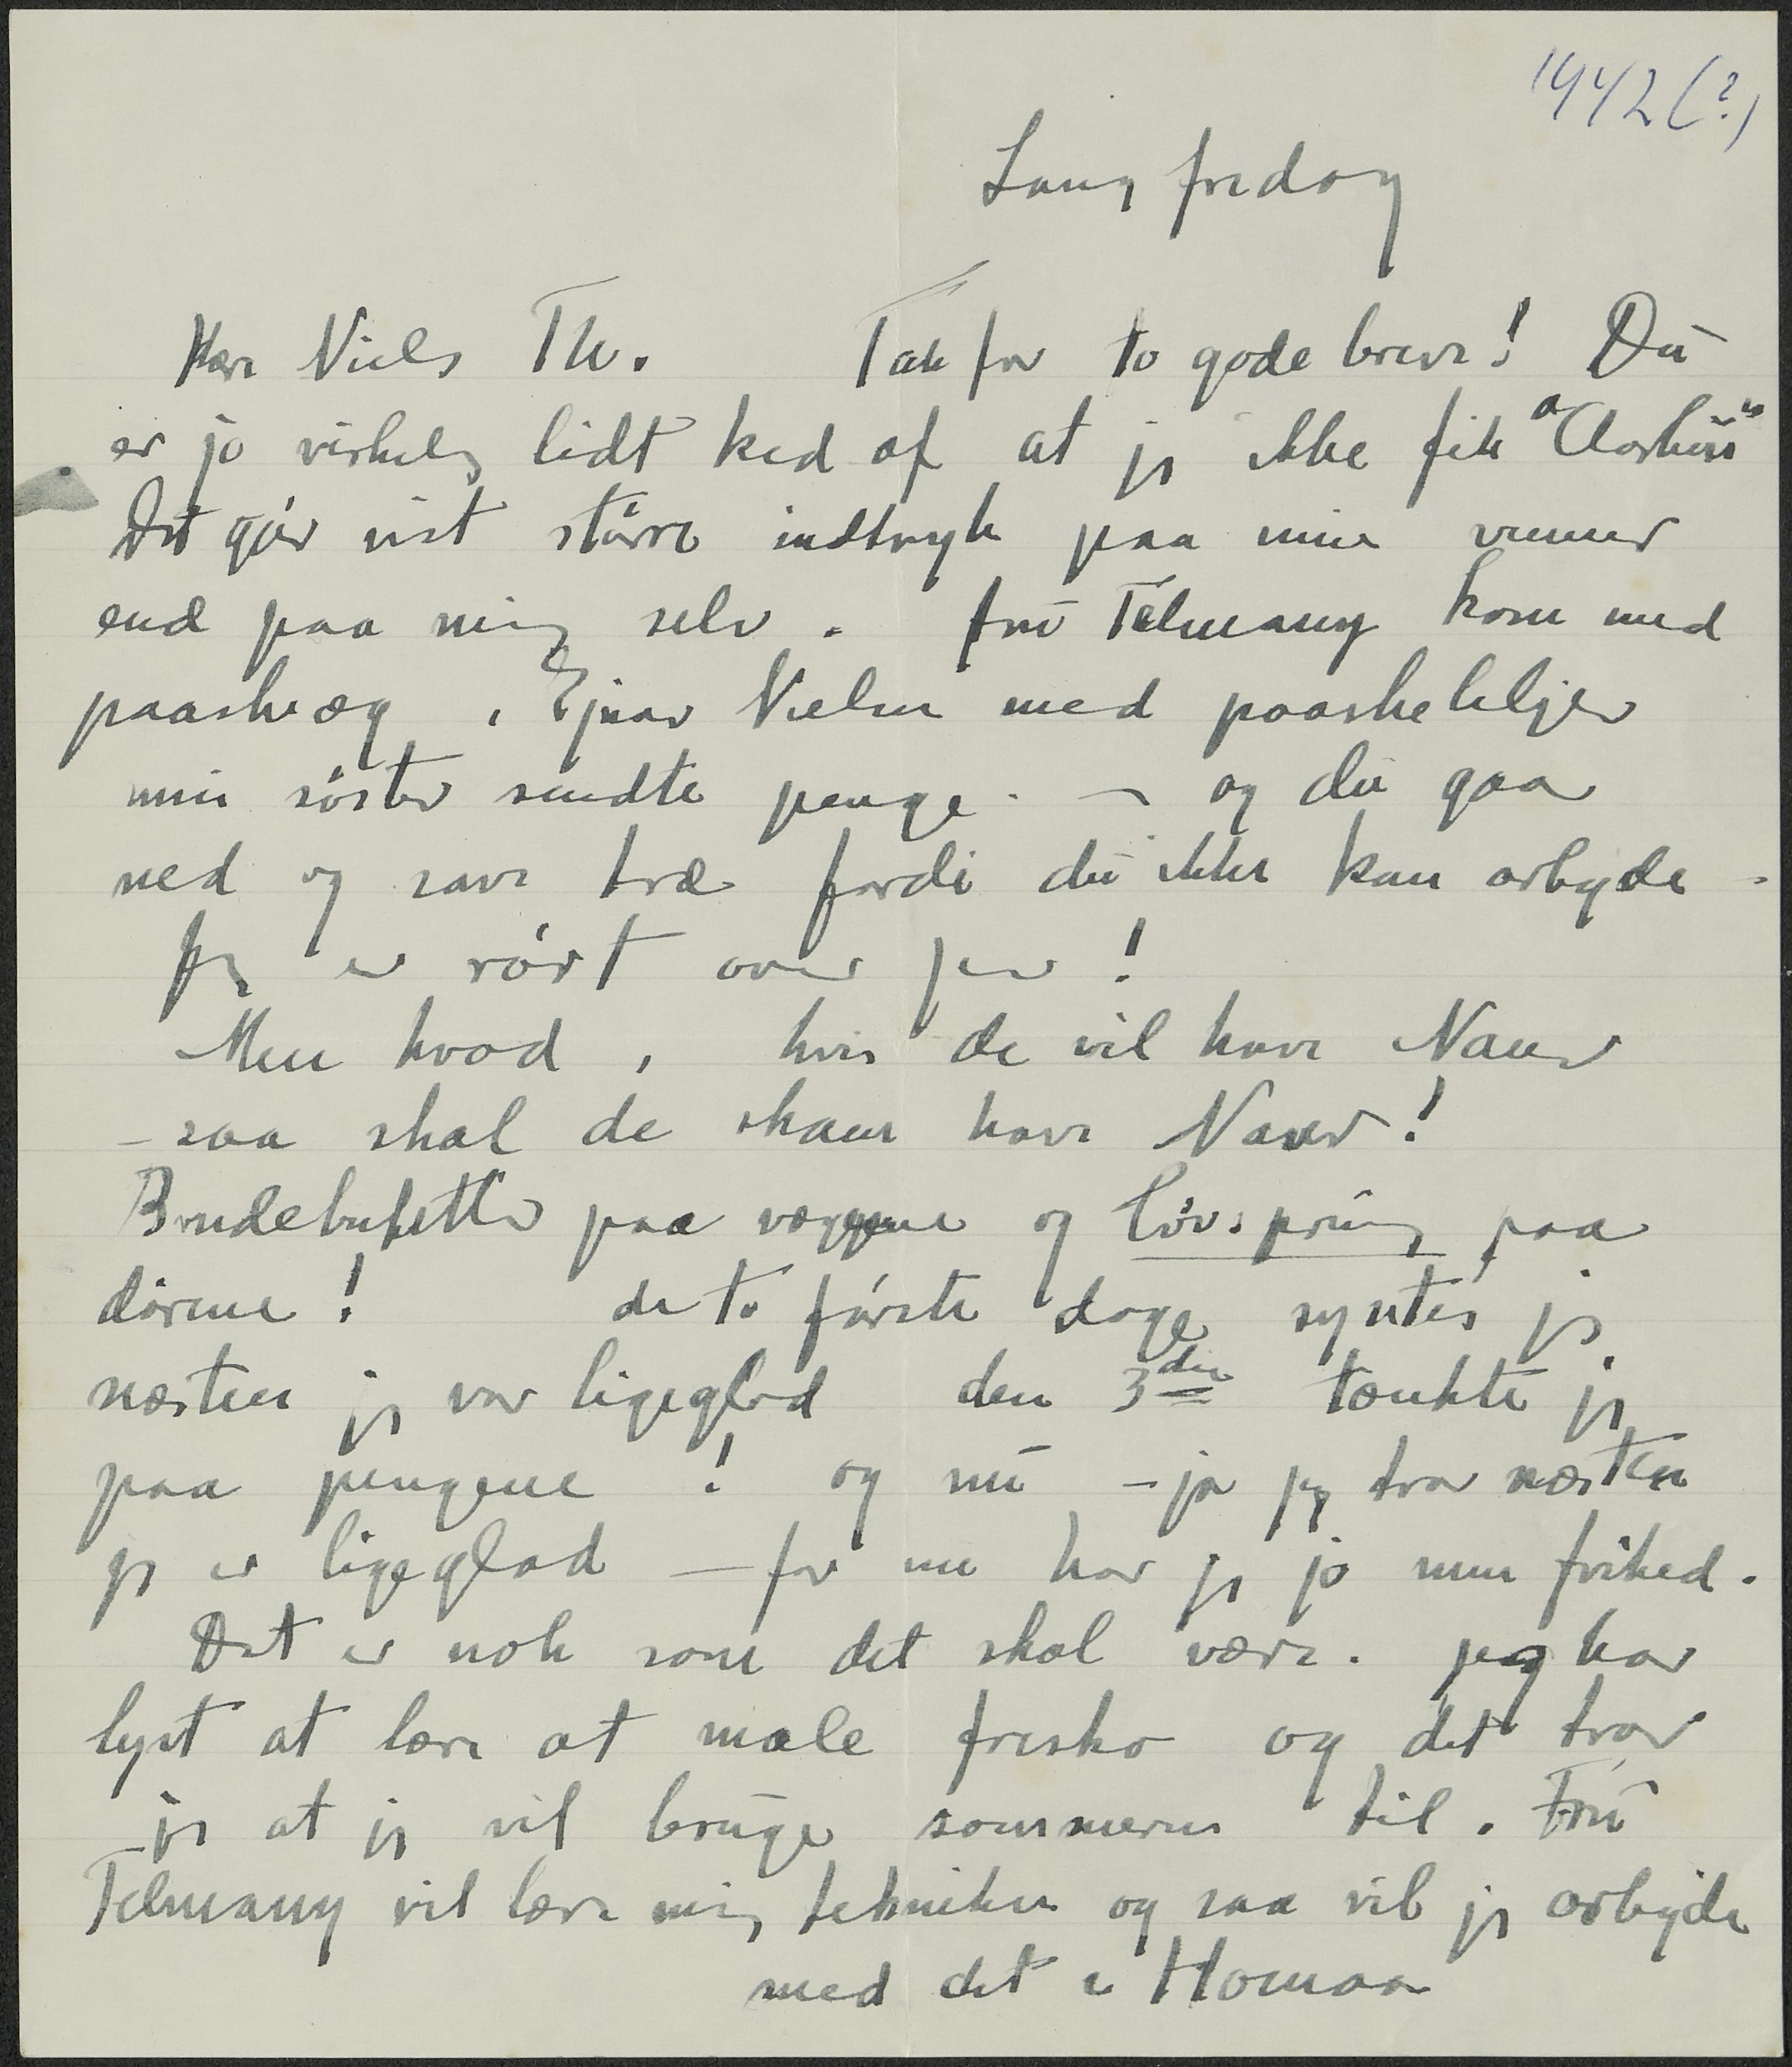 1942 (?)
Lang fredag
Kære Niels Th. Tak for to gode breve! Du
er jo virkelig lidt ked af at jeg ikke fik "Aarhus"
Det gør vist större indtryk paa mine venner
end paa mig selv. fru Telmany kom med
paaskeæg, Ejnar Nielsen med paaskeliljer
min söster sendte penge. – og du gaar
ned og save træ fordi du ikke kan arbejde –
Jeg er rört over jer!
Men hvad, hvis de vil have Naur
– saa skal de skam have Naur!
Brudebuketter paa væggene og lövspring paa
dörene! de to förste dage syntes jeg
næsten jeg var ligeglad den 3die tænkte jeg
paa pengene! og nu – ja jeg tror næsten
jeg er ligeglad – for nu har jeg jo min frihed.
Det er nok som det skal være. jeg har
lyst at lære at male fresko og det tror
jeg at jeg vil bruge sommeren til. Fru
Telmany vil lære mig tekniken og saa vil jeg arbejde
med det i Homaa